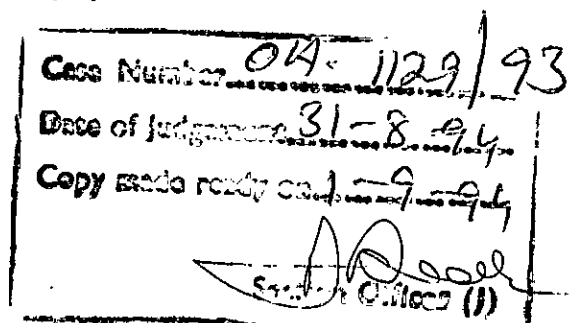 Case Number OA. 1129/93
Date of Judgement 31-8-94
Copy made ready on 1-9-94
Section Officer (J)